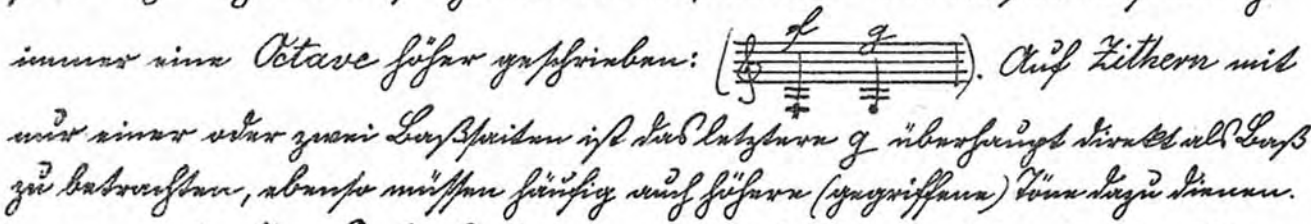 immer eine Octave höher geschrieben: ( f g ). Auf Zithern mit
nur einer oder zwei Baßsaiten ist das letztere g überhaupt direkt als Baß
zu betrachten, ebenso müssen häufig auch höhere (gegriffene) Töne dazu dienen.